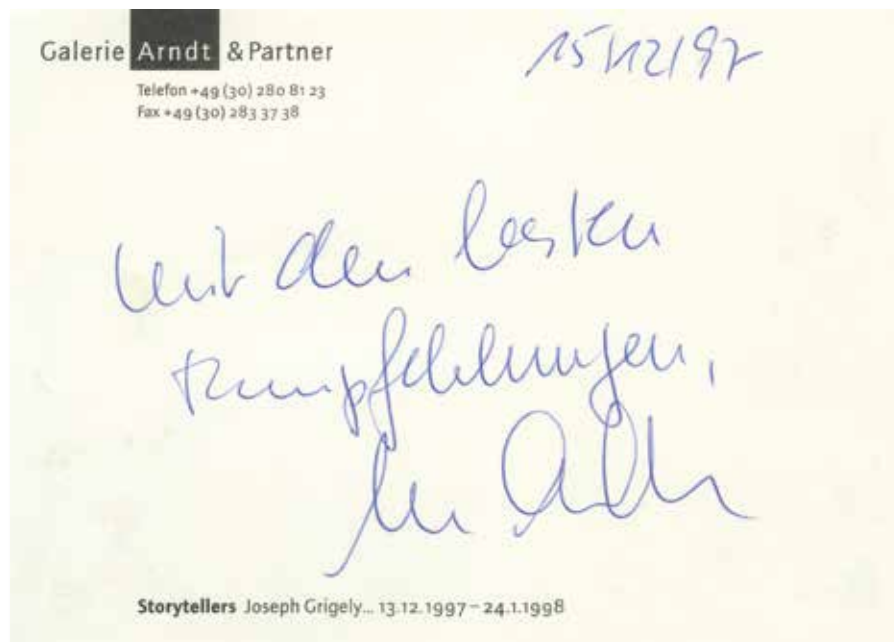 Galerie Arndt & Partner
15/12/97
Telefon +49 (30) 280 81 23
Fax +49 (30) 283 37 38
mit den besten
Empfehlungen,
Storytellers Joseph Grigely... 13.12.1997 – 24.1.1998